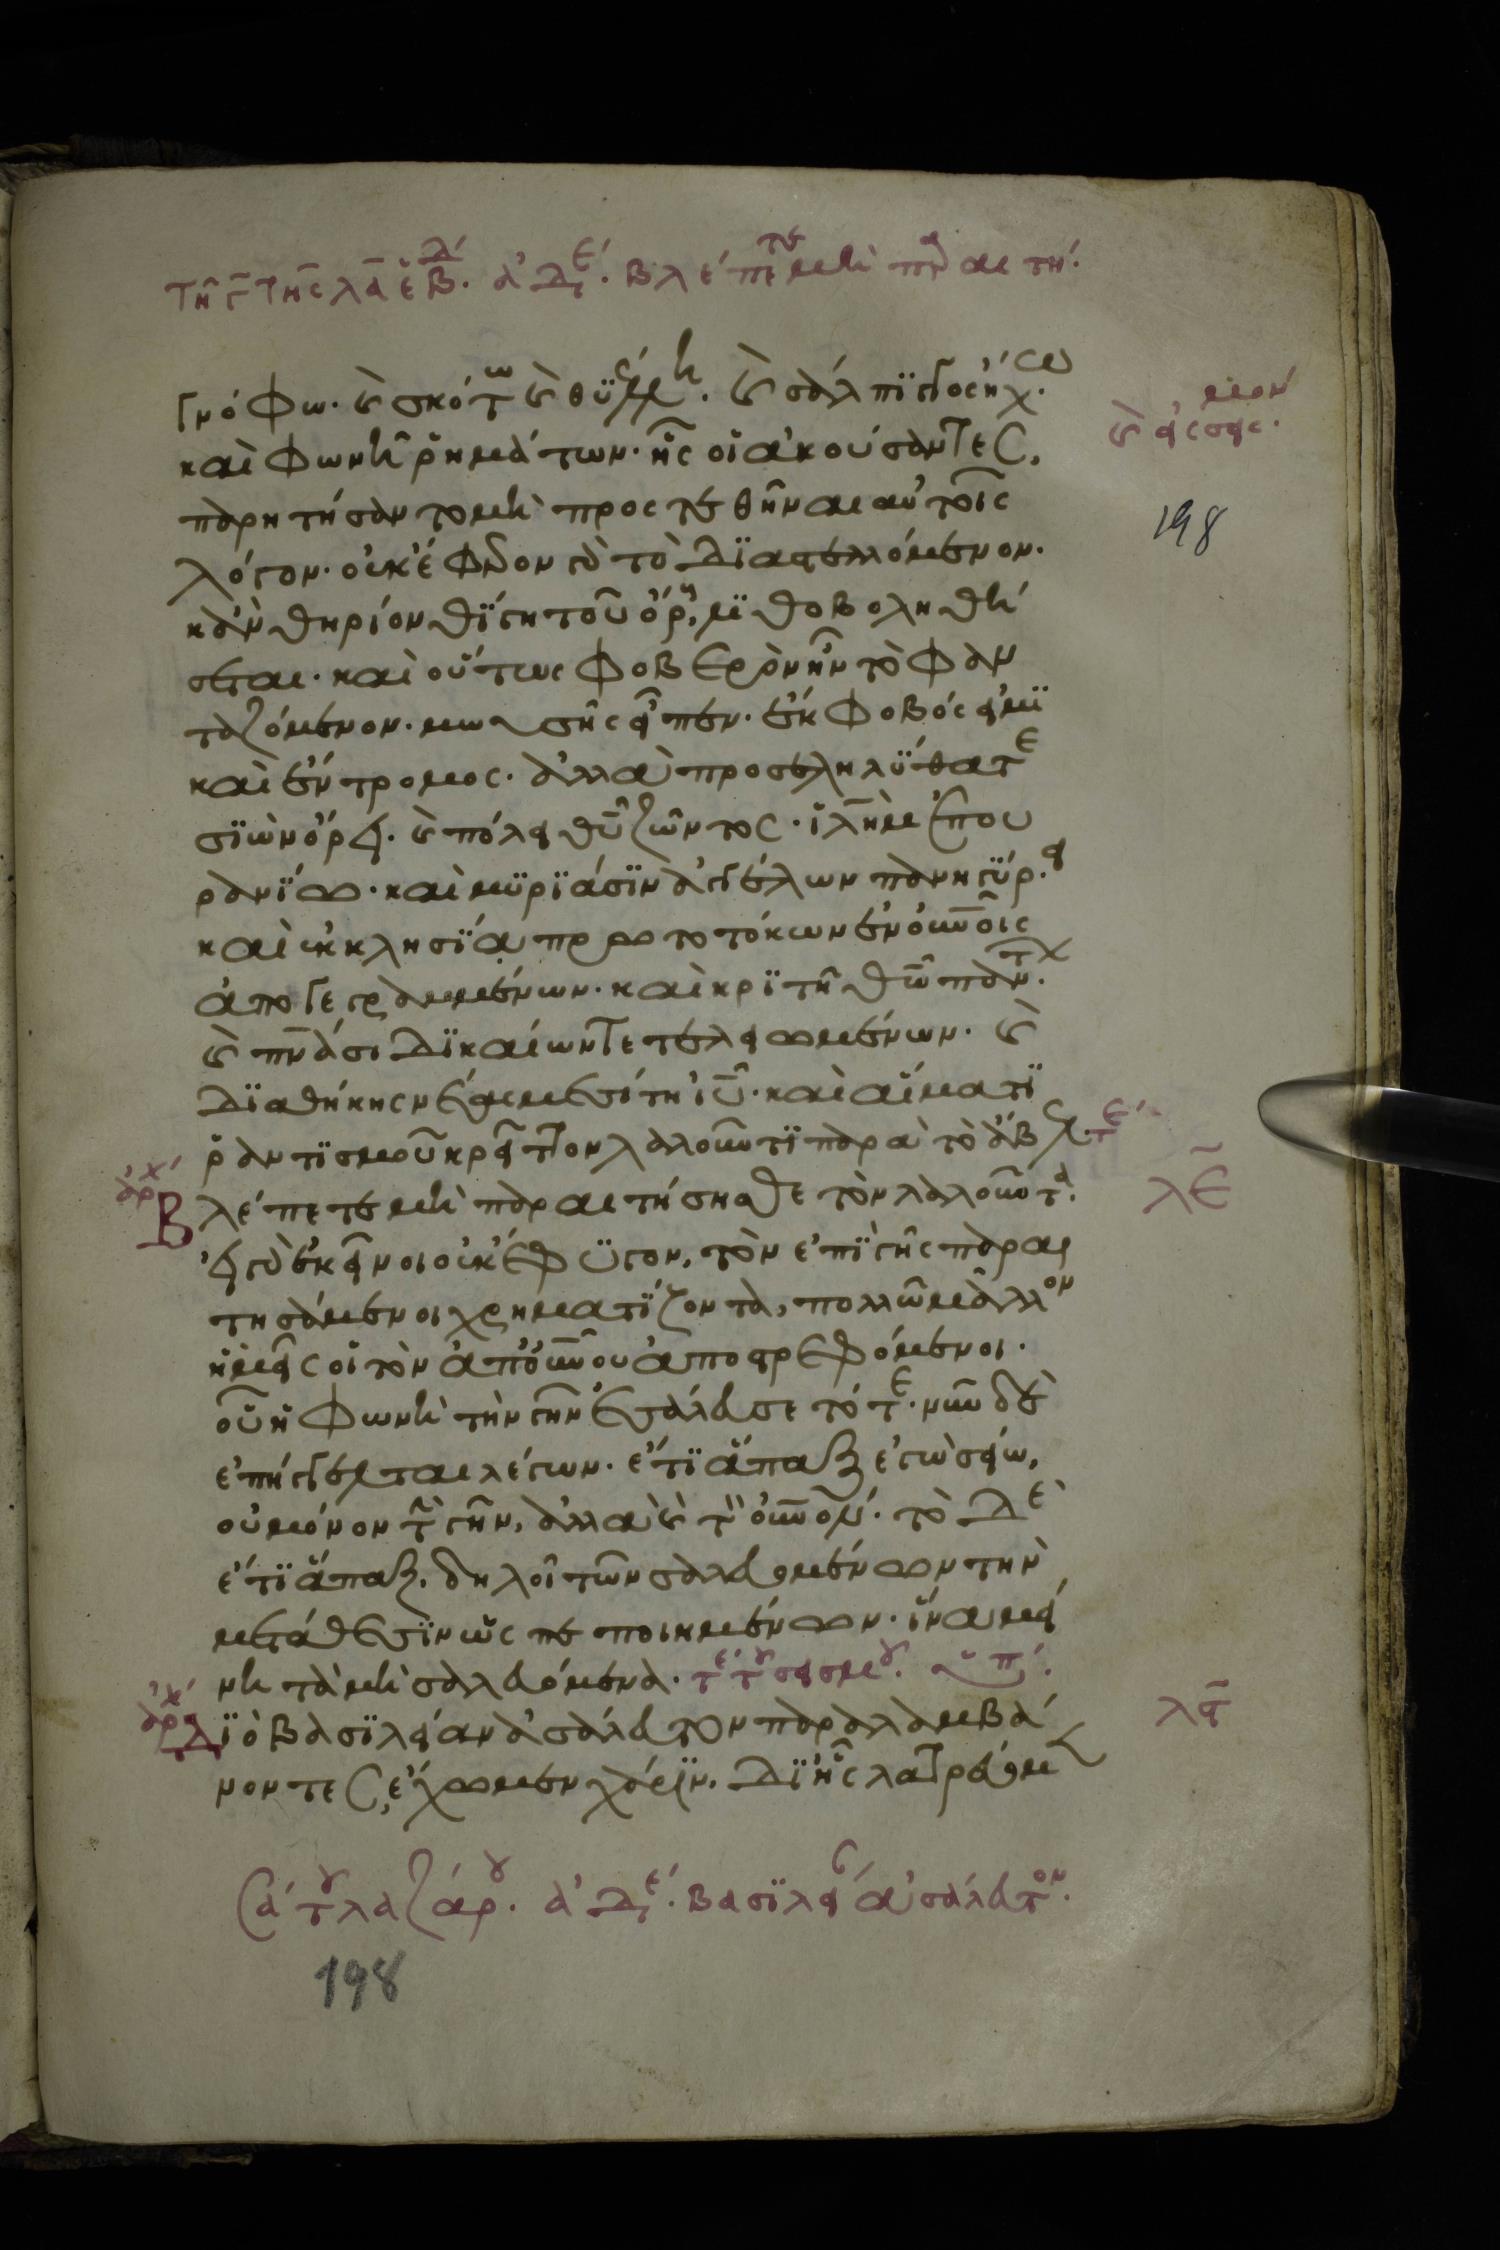 Τῆ ϛ̄ τῆς λ̄α ἑβδ. ἀδε. βλέπετε μὴ παραιτή.
γνόφω· καὶ σκότω καὶ θυέλλη. καὶ σάλπϊγγος ἤχω.
καὶ φωνῆ ῥημάτων· ἧς οἱ ἀκούσαντες,
παρητήσαντο μὴ προστεθῆναι αὐτοῖς
λόγον· οὐκ ἔφερον γὰρ τὸ διαστελλόμενον.
κἂν θηρίον θίγη τοῦ ὄρους, λϊθοβοληθή
σεται· καὶ οὕτως φοβερὸν ἦν τὸ φαν
ταζόμενον. μωϋσῆς εἶπεν· ἔκφοβός εἰμϊ
καὶ ἔντρομος. ἀλλὰ προσεληλύθατε
σϊὼν ὄρει. καὶ πόλει θῦ ζῶντος. ἱλὴμ ἐπου
ρανίω· καὶ μυρϊάσϊν ἀγγέλων πανηγύρει.
καὶ ἐκκλησία πρωτοτόκων ἐν οὐνοῖς
ἀπογεγραμμένων· καὶ κριτῆ θῶ πάντων.
καὶ πνάσι δικαίων τετελειωμένων. καὶ
διαθήκης νέας μεσίτη ἰῦ· καὶ αἵματϊ
ῥαντισμοῦ κρεῖττον λαλοῦντϊ παρὰ τὸ ἄβελ. τε
ἀρχ
Βλέπετε μὴ παραιτήσησθε τὸν λαλοῦντα.
εἰ γὰρ ἐκεῖνοι οὐκ ἔφυγον, τὸν ἐπὶ γῆς παραι
τησάμενοι χρηματίζοντα, πολλῶ μᾶλλον
ἡμεῖς οἱ τὸν ἀπ' οὐνου ἀποστρεφόμενοι.
οὗ ἡ φωνὴ τὴν γῆν ἐσάλευσε τότε. νῦν δὲ
ἐπήγγελται λέγων. ἔτϊ ἅπαξ ἐγὼ σείω,
οὐ μόνον τὴν γῆν, ἀλλὰ καὶ τὸν οὐνόν. τὸ δὲ
ἔτϊ ἅπαξ, δηλοῖ τῶν σαλευομένων τὴν
μετάθεσϊν ὡς πεποιημένων. ἵνα μεί
νη τὰ μὴ σαλευόμενα.
ἀρχ
Διὸ βασϊλείαν ἀσάλευτον παραλαμβά
νοντες, ἔχωμεν χάριν. δϊ' ἧς λατρεύομεν
Σα τοῦ λαζάρου. ἀδε. βασϊλείαν ἀσάλευτον.
λ̄ε
λ̄ϛ
198
198